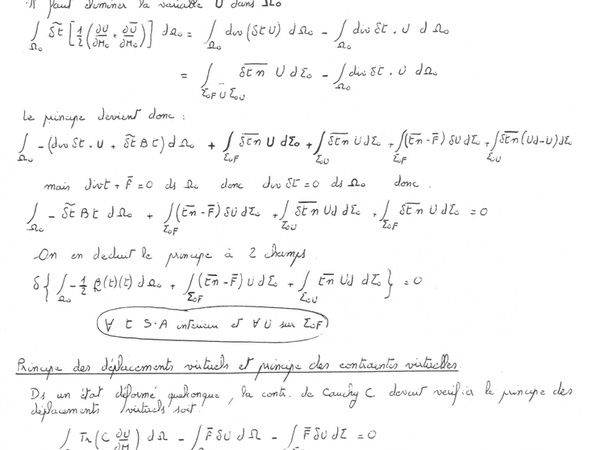 Il faut éliminer la variable U dans Ω₀
∫_Ω₀ δ̃t [½(∂U/∂M₀ + ∂̄U/∂M₀)] dΩ₀ = ∫_Ω₀ div(δt U) dΩ₀ − ∫_Ω₀ div δt . U dΩ₀
= ∫_Σ₀F ∪ Σ₀U δt̄n U dΣ₀ − ∫_Ω₀ div δt . U dΩ₀
Le principe devient donc :
∫_Ω₀ −(div δt . U + δ̃t B t) dΩ₀ + ∫_Σ₀F δt̄n U dΣ₀ + ∫_Σ₀U δt̄n U dΣ₀ + ∫_Σ₀F (t̄n − F̄) δU dΣ₀ + ∫_Σ₀U δt̄n (Ud − U) dΣ
mais div t + F̄ = 0 ds Ω₀ donc div δt = 0 ds Ω₀ donc .
∫_Ω₀ − δ̃t B t dΩ₀ + ∫_Σ₀F (t̄n − F̄) δU dΣ₀ + ∫_Σ₀U δt̄n Ud dΣ₀ + ∫_Σ₀F δt̄n U dΣ₀ = 0
On en déduit le principe à 2 champs
δ{ ∫_Ω₀ −½ B(t)(t) dΩ₀ + ∫_Σ₀F (t̄n − F̄) U dΣ₀ + ∫_Σ₀U t̄n Ud dΣ₀ } = 0
∀ t S.A intérieur et ∀ U sur Σ₀F
Principe des déplacements virtuels et principe des contraintes virtuelles.
Ds un état déformé quelconque, la contr. de Cauchy C. devait vérifier le principe des
déplacements virtuels soit
∫ Tr(C ∂δU/∂M) dΩ − ∫ F̄ δU dΩ − ∫ F̄ δU dΣ = 0